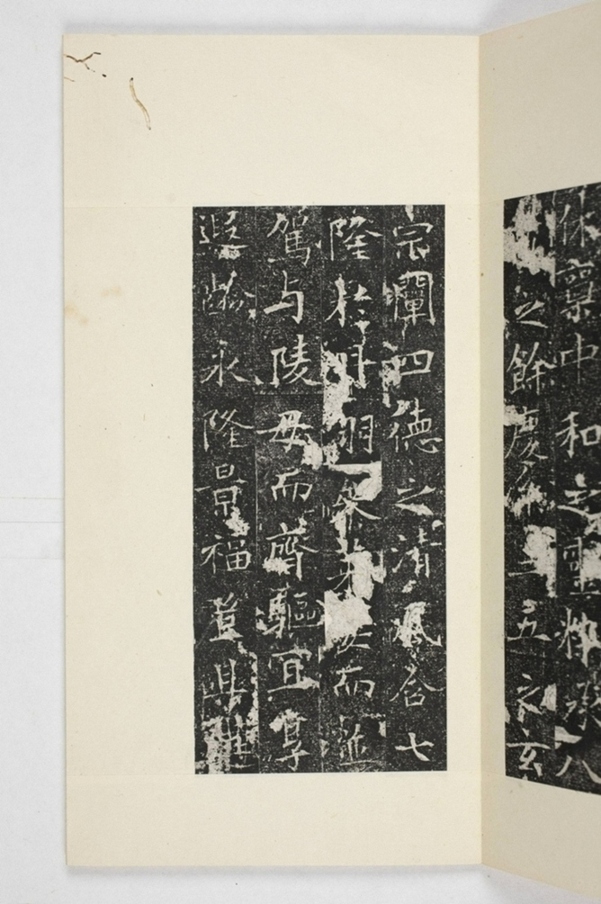 休稟中和之靈粹承八
之餘慶三五之玄
宗闡四德之清風含七
隆於而並
駕与陵母而齊驅宜享
遐齡永隆景福豈